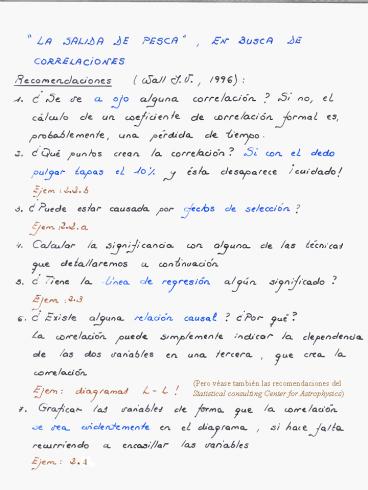 "LA SALIDA DE PESCA", EN BUSCA DE
CORRELACIONES
Recomendaciones (Wall J.V., 1996):
1. ¿Se ve a ojo alguna correlación? Si no, el
cálculo de un coeficiente de correlación formal es,
probablemente, una pérdida de tiempo.
2. ¿Qué puntos crean la correlación? Si con el dedo
pulgar tapas el 10% y ésta desaparece ¡cuidado!
Ejem: 2.2.b
3. ¿Puede estar causada por efectos de selección?
Ejem: 2.2.a
4. Calcular la significancia con alguna de las técnicas
que detallaremos a continuación
5. ¿Tiene la línea de regresión algún significado?
Ejem: 2.3
6. ¿Existe alguna relación causal? ¿Por qué?
La correlación puede simplemente indicar la dependencia
de las dos variables en una tercera, que crea la
correlación
Ejem: diagramas L-L!
(Pero véase también las recomendaciones del
Statistical consulting Center for Astrophysics)
7. Graficar las variables de forma que la correlación
se vea evidentemente en el diagrama, si hace falta
recurriendo a encasillar las variables
Ejem: 2.4